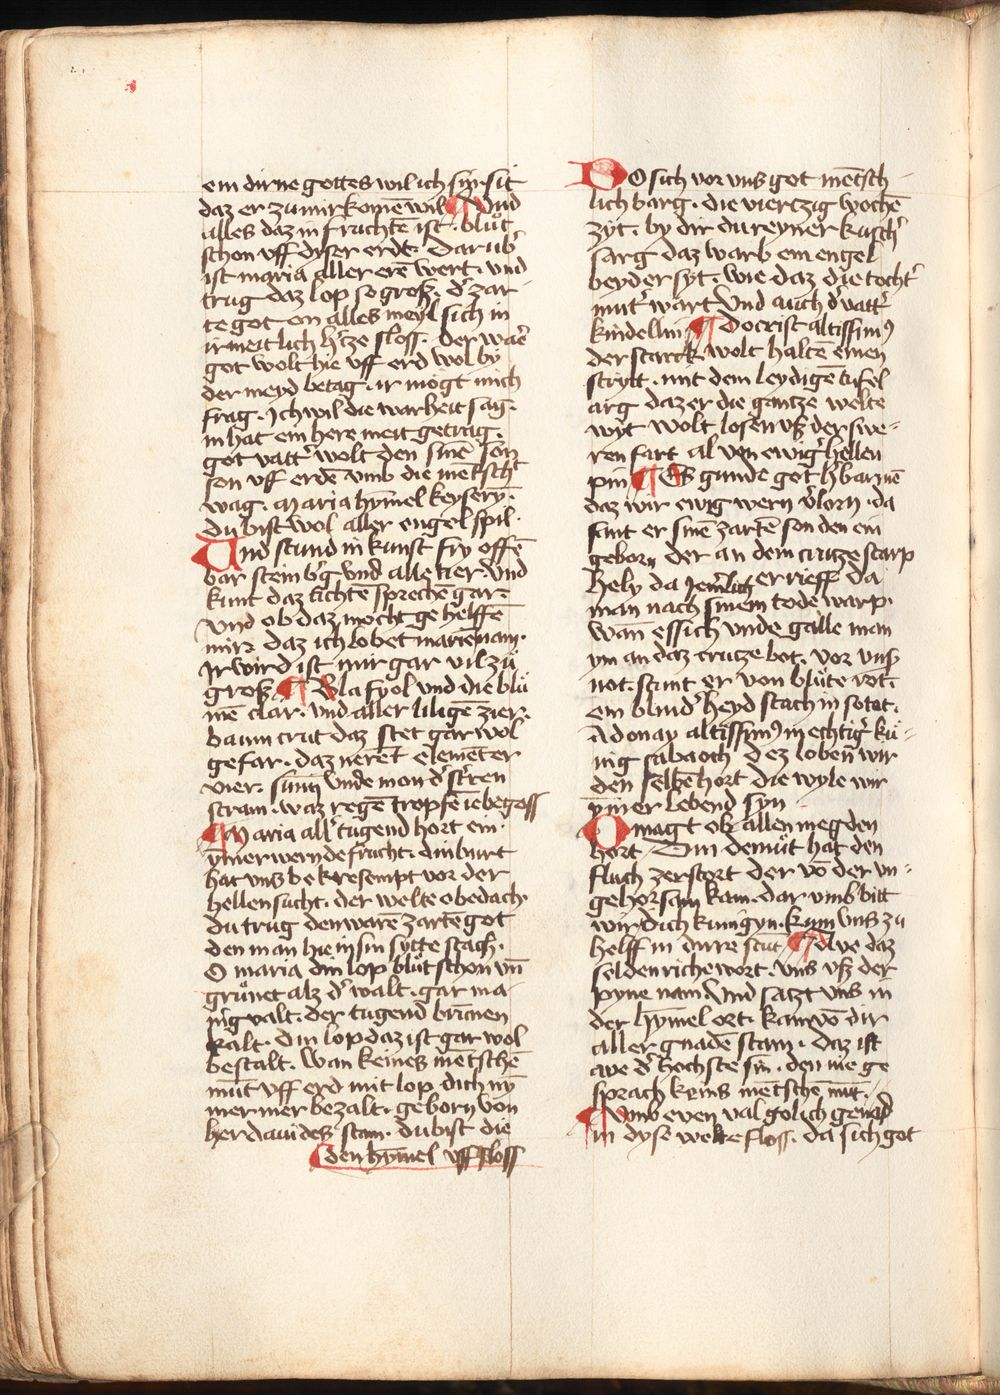 ein dirne gottes wil ich sin sit
daz er zu mir komē wil Vnd
alles daz in fruchtē ist. blut
schon vff dyser erde. Dar ub'
ist maria aller erē wert. vnd
trug daz lop so groß. d' zar
te got on alles meyl sich in
ir meitlich h'tze floss. Der waē
got wolt hie vff erd wol by
der meyd betag. ir mögt mich
frag. Ich wil die warheit sag.
in hat ein here meit getrag.
got vatt' wolt den sinē son
son vff erdē vmb die mētsch
wag. Maria hȳmel keyseryn.
du bist wol aller engel spil.
Vnd stund in kunst fry offē
bar stein b'g vnd alle tier. Vnd
kunt daz tichtē sprechē gar.
Vnd ob daz mocht ge helffē
mir. daz ich lobet mariē nam.
Ir wird ist mir gar vil zu
groß. Bla fyol vnd die blů
mē clar. vnd aller liligē zier.
baum crut daz stet gar wol
gefar. daz nerēt elemēter
vier. sunn vnde mon d' st'ren
stram. waz regē tropfē ie begoss
Maria all' tugend hort ein
ȳmer wernde frucht. din burt
hat vns be kresempt vor der
hellen sucht. der welte obedach.
du trug den warē zarte got
den man hie in sin sytte stach.
O maria din lop blůt schon vn̄
grůnet alz d' walt. gar ma
nig valt. der tugend brūnen
kalt. din lop daz ist gar wol
bestalt. Wan keines mētschē
můt vff erd mit lop dich nȳ
mer mer bezalt. geborn von
herdauides stam. du bist die
den hȳmel vff sloss
Do sich vor vns got mētsch
lich barg. die viertzig wochē
zyt. by dir du reyner kusch'
sarg daz warb ein engel
beyder syt. wie daz die tocht'
mut' wart Vnd auch d' vatt'
kindellin Do crist altissim9
der starck wolt haltē einen
strytt. mit dem leydigē tufel
arg daz er die gantze welte
wyt wolt losen vß der swe
ren fart al von ewig' hellen
pin Es gunde got h'barmē
daz wir ewig wern v'lorn. da
sant er sinē zartē son den ein
geborn der an dem crutze starp
hely da jem'lich er rieff da
man nach sinem tode warp.
wan essich vnde galle man
ym an daz crutze bot. vor vnß
not. stunt er von blůte rot.
ein blind' heyd stach in so tot.
Adonay altissim9 mechtig' kü
nig sabaoth dez loben wir
den selbē hort die wyle wir
ȳmer lebend syn
O magt ob allen megden
hort Din demůt hat den
fluch zerstort der vō der vn
gehorsam kam. dar vmb bitt
wir dich kunigyn. kum vns zu
helff in dirre stūt Ave daz
selden riche wort. vns vß der
pyne nam Vnd satzt vns in
der hȳmel ort. kam vō dir
aller gnadē stam. daz ist
ave d' hochste sin. den nie ge
sprach keins mētschē mūt.
Vmb even val golich genad
in dyse welte floss. da sich got